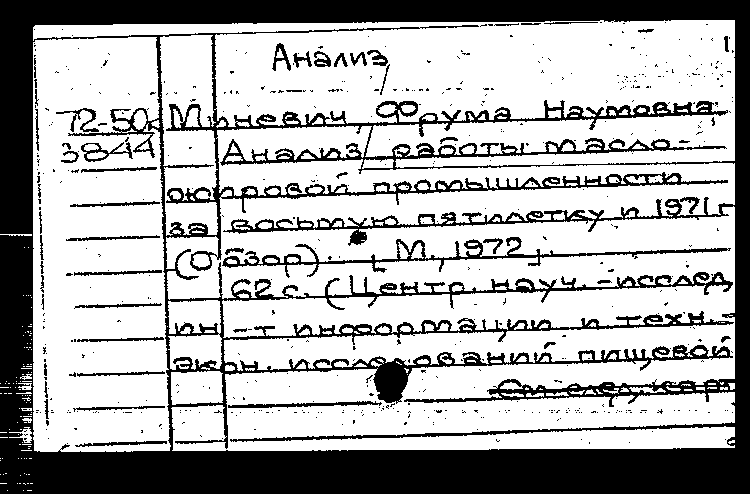 Анализ
72-50к Миневич, Фрума Наумовна
3844 Анализ работы масло-
жировой промышленности
за восьмую пятилетку и 1971 г
(Обзор). [М., 1972].
62 с. (Центр. науч.-исслед.
ин-т информации и техн.-
экон. исследований пищевой
См. след. кар